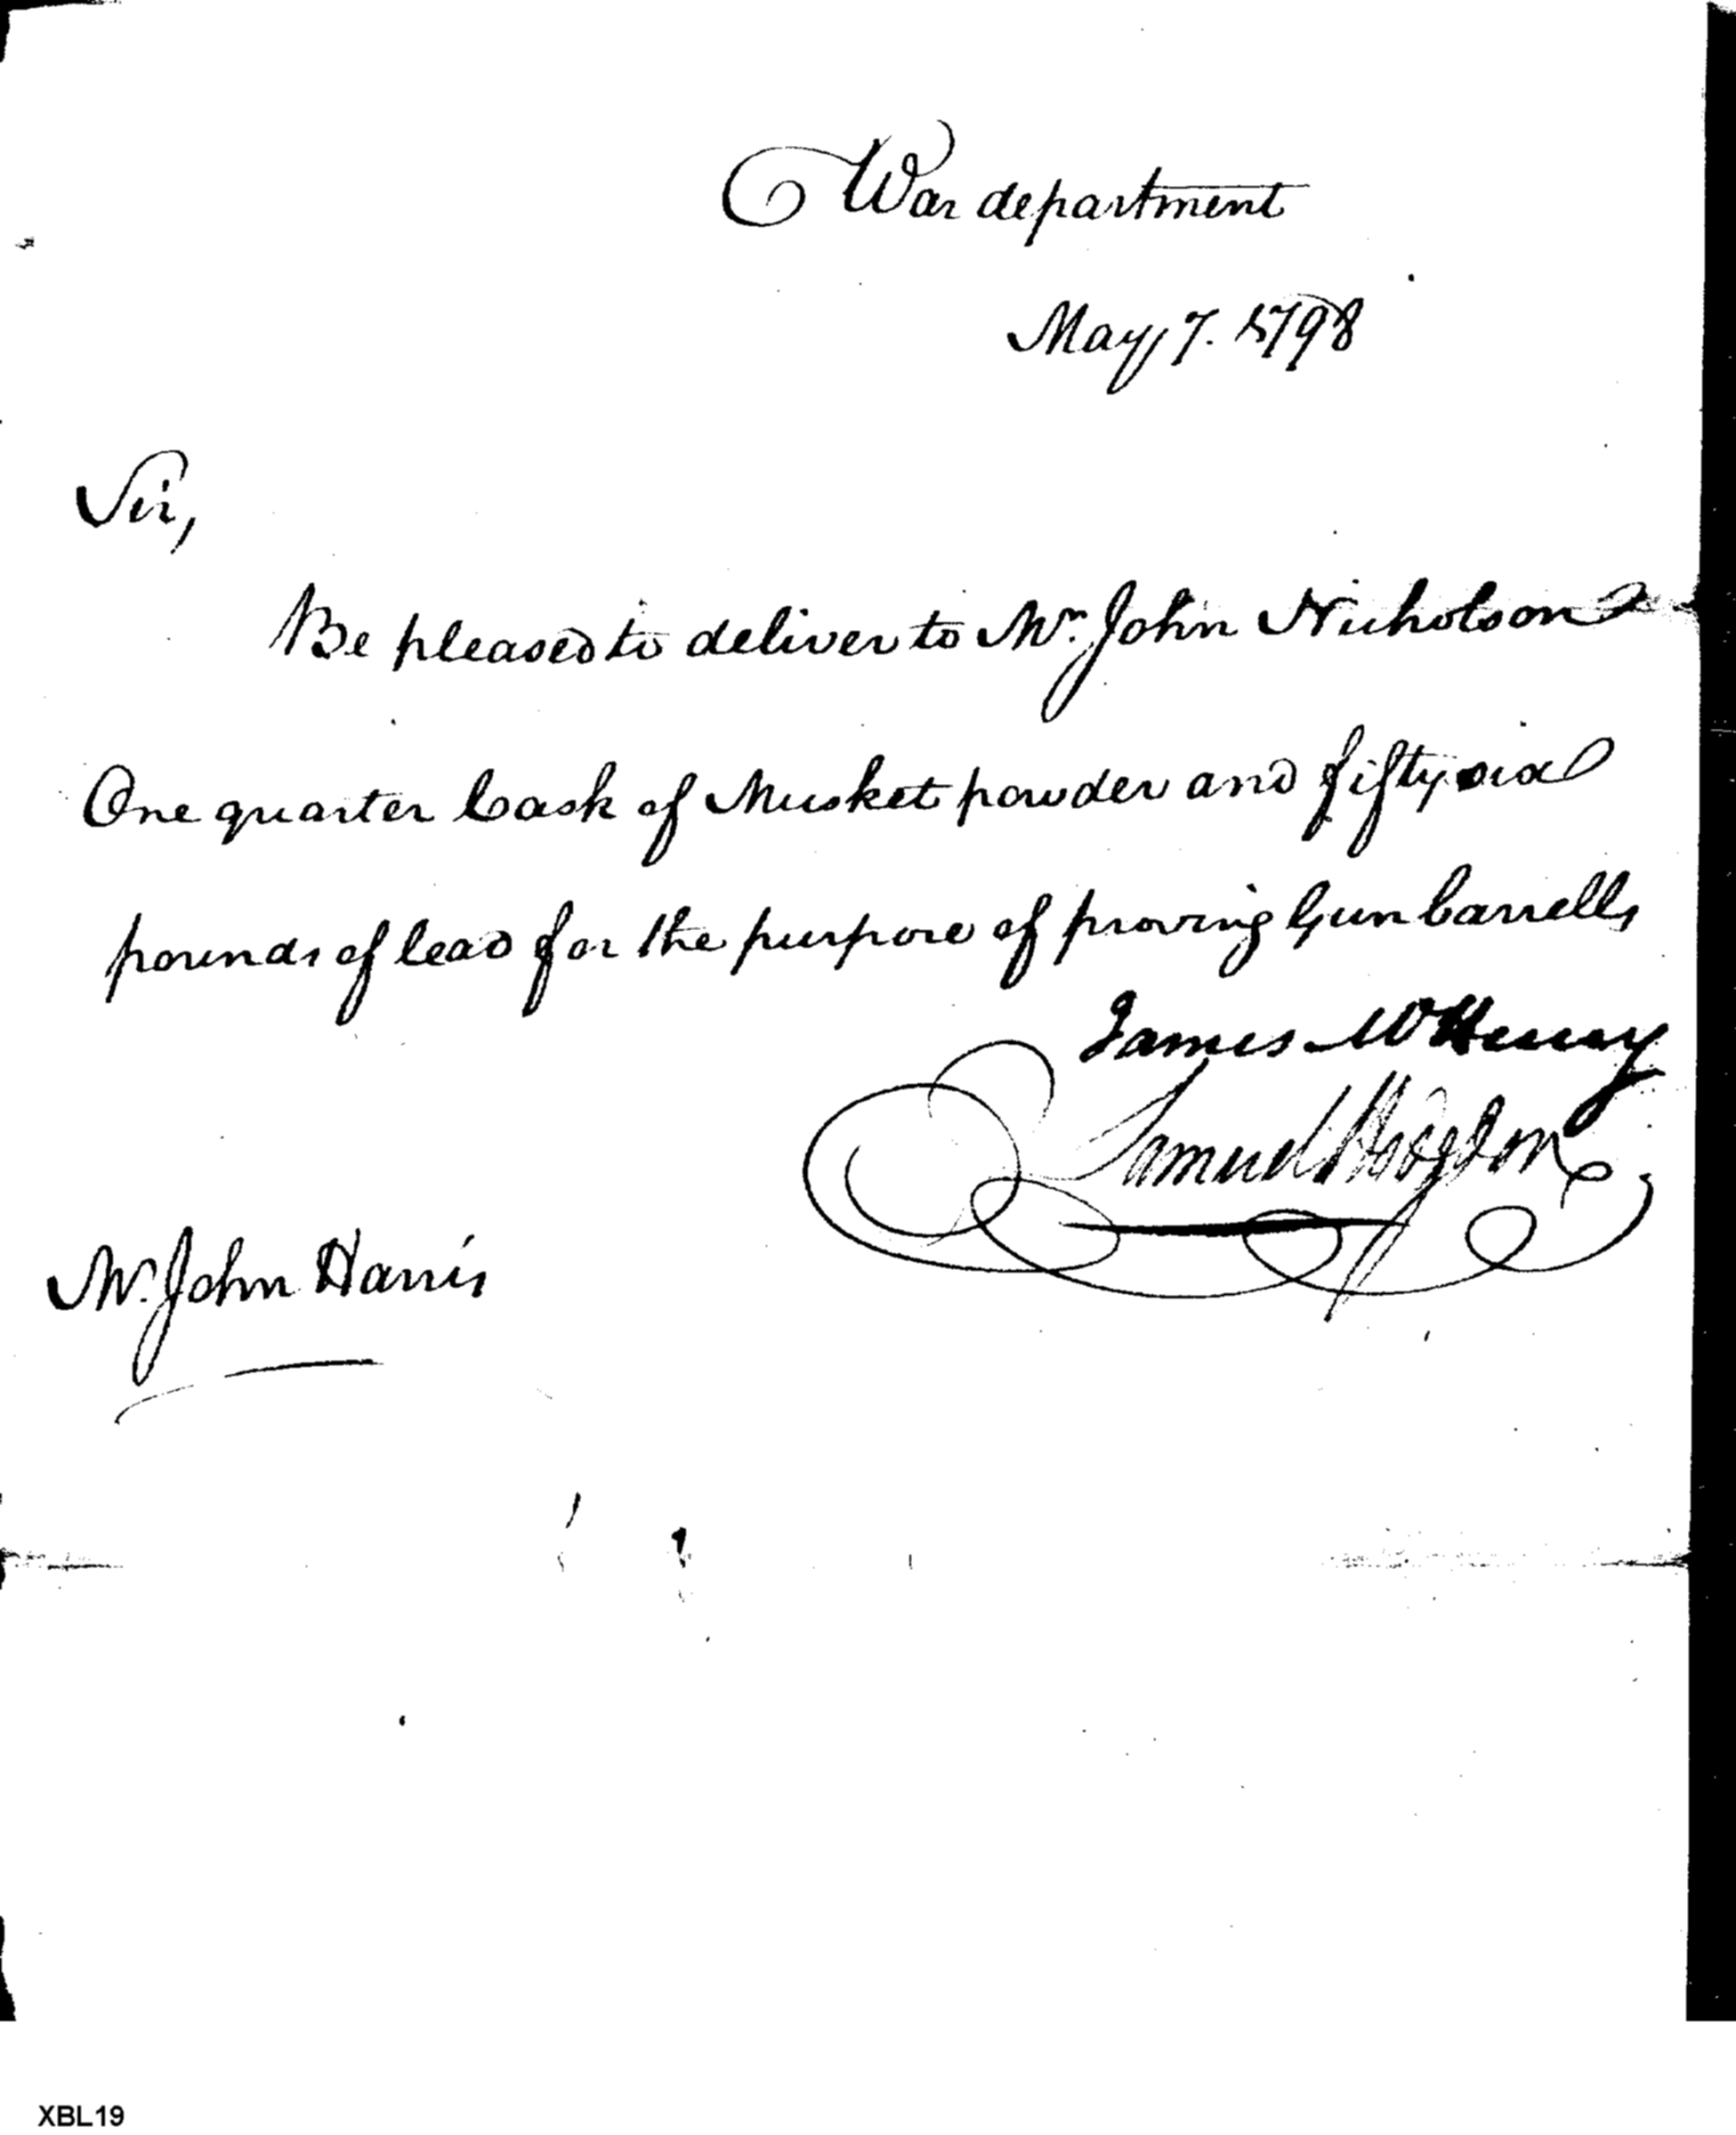 War department
May 7. 1798
Sir,
Be pleased to deliver to Mr. John Nicholson
One quarter Cask of Musket powder and fifty six
pounds of lead for the purpose of proving Gun barrells
James McHenry
Samuel Hodgdon
Mr. John Harris
XBL19